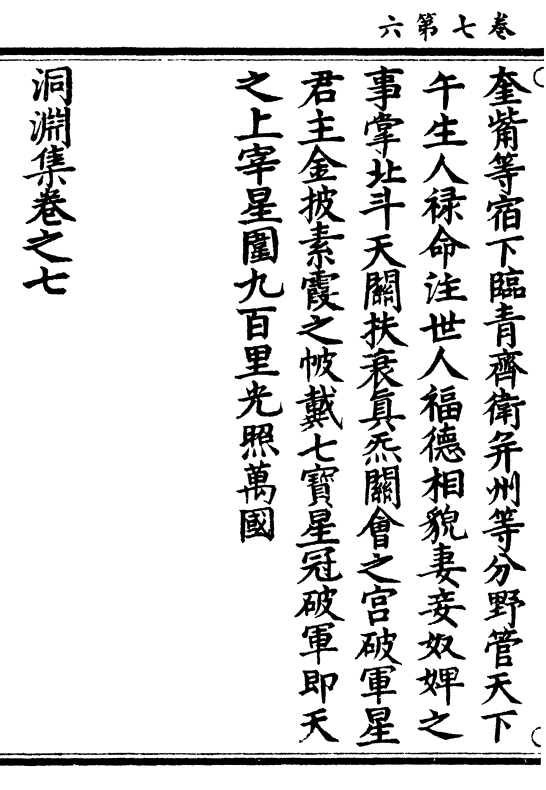 卷七第六
奎觜等宿下臨青齊衛并州等分野管天下
午生人禄命注世人福德相貌妻妾奴婢之
事掌北斗天關扶衰真炁關會之宫破軍星
君主金披素霞之帔戴七寶星冠破軍即天
之上宰星圍九百里光照萬國
洞淵集卷之七